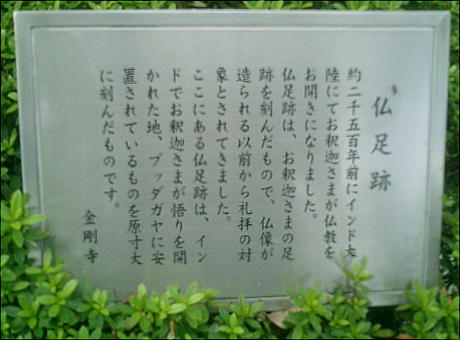 仏足跡
約二千五百年前にインド大
陸にてお釈迦さまが仏教を
お開きになりました。
仏足跡は、お釈迦さまの足
跡を刻んだもので、仏像が
造られる以前から礼拝の対
象とされてきました。
ここにある仏足跡は、イン
ドでお釈迦さまが悟りを開
かれた地、ブッダガヤに安
置されているものを原寸大
に刻んだものです。
金剛寺